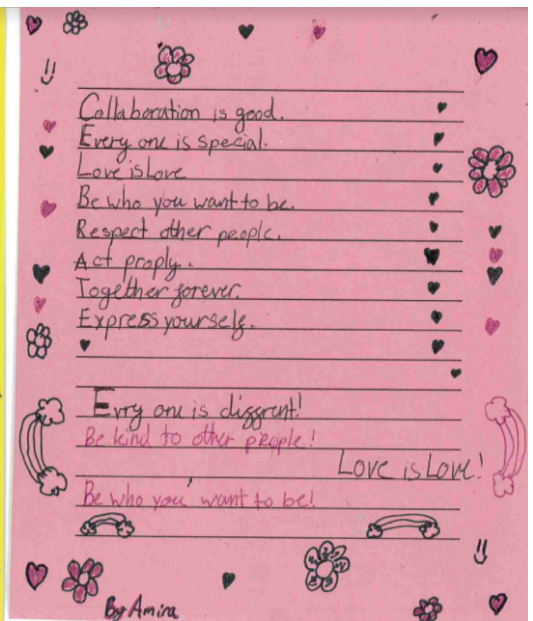 Collaboration is good.
Every one is special.
Love is Love
Be who you want to be.
Respect other people.
Act proply.
Together forever.
Express yourself.
Evry one is diffrent!
Be kind to other people!
Love is Love!
Be who you want to be!
By Amina